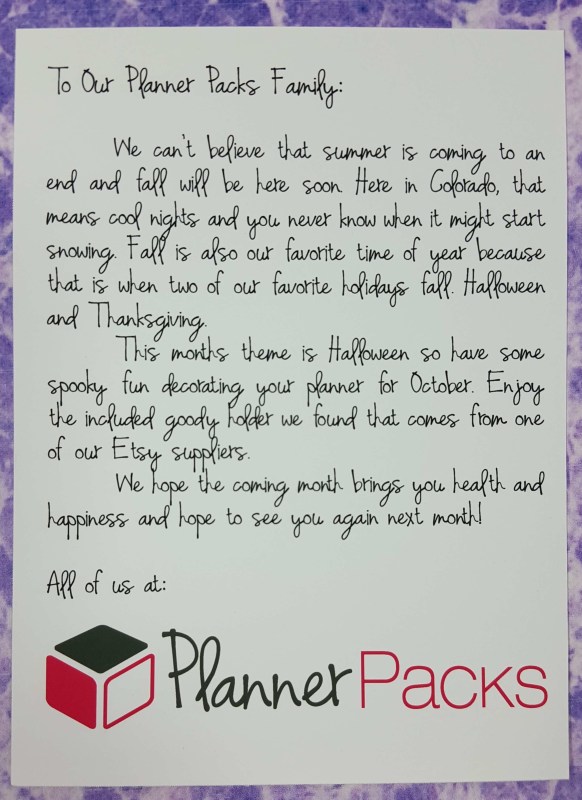 To Our Planner Packs Family:
We can't believe that summer is coming to an
end and fall will be here soon. Here in Colorado, that
means cool nights and you never know when it might start
snowing. Fall is also our favorite time of year because
that is when two of our favorite holidays fall. Halloween
and Thanksgiving.
This months theme is Halloween so have some
spooky fun decorating your planner for October. Enjoy
the included goody holder we found that comes from one
of our Etsy suppliers.
We hope the coming month brings you health and
happiness and hope to see you again next month!
All of us at:
Planner Packs